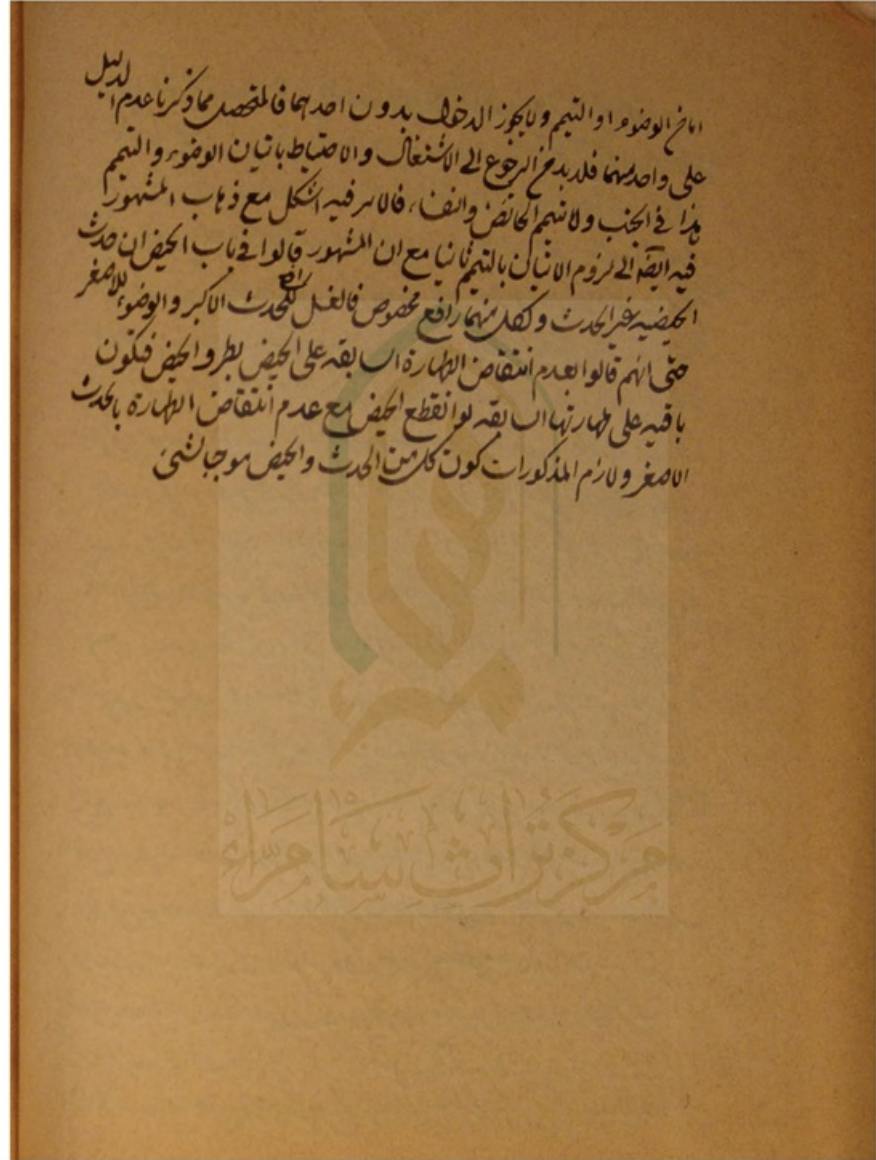 اما من الوضوء او التيمم ولا يجوز الدخول بدون احدهما فالمتحصل مما ذكرنا عدم الدليل
على واحد منهما فلا بد من الرجوع الى الاشتغال والاحتياط باتيان الوضوء والتيمم
هذا في الجنب ولا تيمم الحائض والنفساء فالامر فيه اشكل مع ذهاب المشهور
فيه ايضا الى لزوم الاتيان بالتيمم ثانيا مع ان المشهور قالوا في باب الحيض ان حدث
الحيضيه غير الحدث ولكل منهما رافع مخصوص فالغسل رافع للحدث الاكبر والوضوء للاصغر
حتى انهم قالوا بعدم انتقاض الطهارة السابقه على الحيض بطرو الحيض فتكون
باقيه على طهارتها السابقه لو انقطع الحيض مع عدم انتقاض الطهارة بالحدث
الاصغر ولازم المذكورات كون كل من الحدث والحيض موجبا لشئ
مركز تراث سامراء